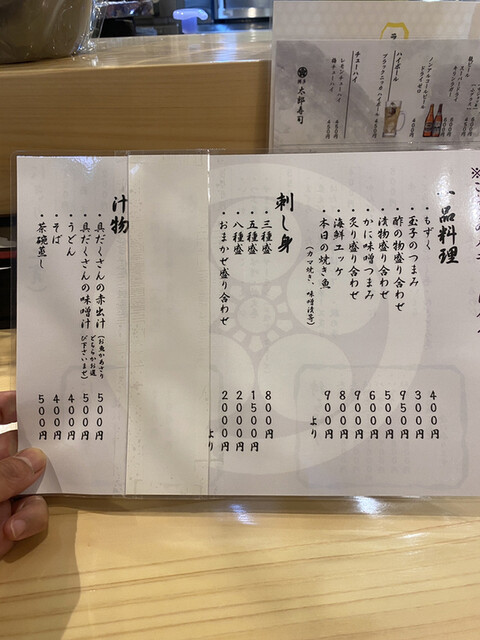 チューハイ
レモンチューハイ
梅チューハイ
ハイボール
ブラックニッカ ハイボール
ノンアルコールビール
ドライゼロ
太郎寿司
一品料理
・もずく 400円
・玉子のつまみ 300円
・酢の物盛り合わせ 950円
・漬物盛り合わせ 500円
・かに味噌つまみ 600円
・炙り盛り合わせ 900円
・海鮮ユッケ 800円
・本日の焼き魚 900円より
(カマ焼き、味噌漬等)
刺し身
・三種盛 800円
・五種盛 1500円
・八種盛 2000円
・おまかせ盛り合わせ 2000円より
汁物
・具だくさんの赤出汁 500円
・具だくさんの味噌汁 500円
(お魚かあさり
どちらかお選
び下さいませ)
・うどん 400円
・そば 400円
・茶碗蒸し 500円